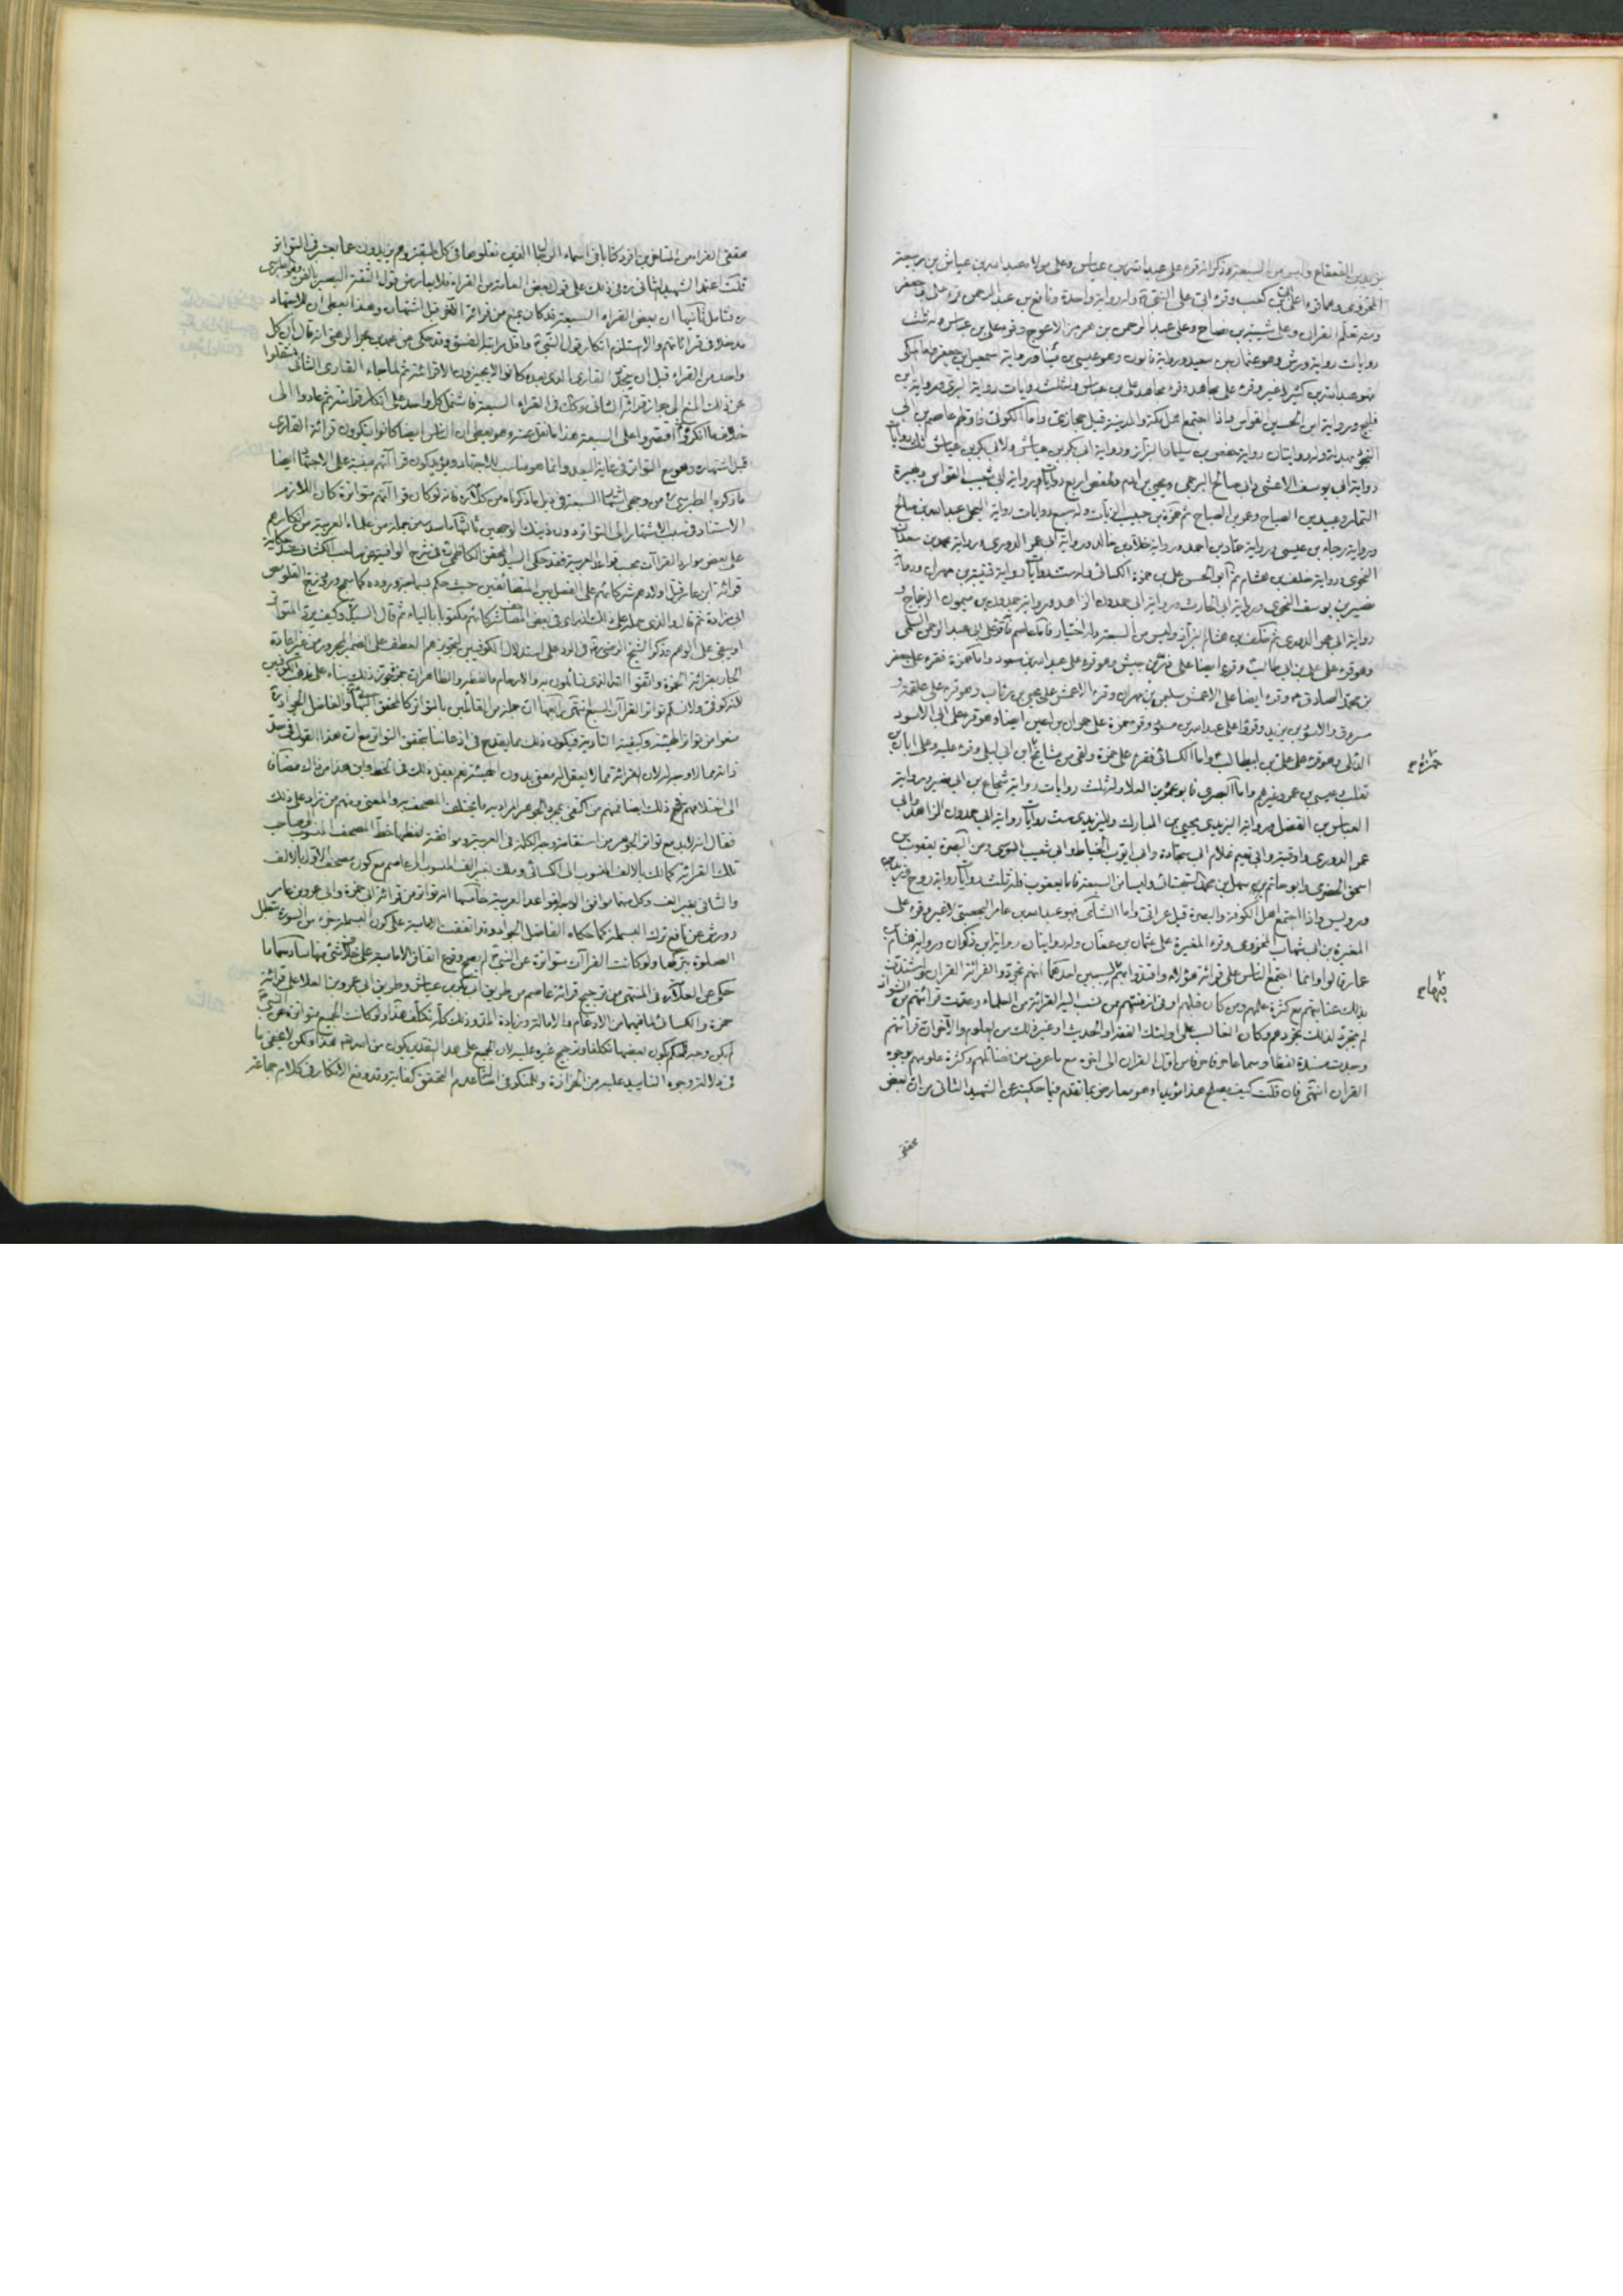 يزيد بن القعقاع وليس من السبعة وذكر انه قرء على عبد الله بن عباس وعلى مولاه عبد الله بن عياش بن ربيعة
المخزومي وهما قرءا على ابي بن كعب وقرء ابي على النبي ص وله رواية واحدة ونافع بن عبد الرحمن قرء على ابي جعفر
ومنه تعلم القران وعلى شيبة بن نصاح وعلى عبد الرحمن بن هرمز الاعرج وقرء على بن عباس وله ثلث
روايات رواية ورش وهو عثمان بن سعيد ورواية قالون وهو عيسى بن مينا ورواية اسمعيل بن جعفر واما المكي
فهو عبد الله بن كثير لا غير وقرء على مجاهد وقرء مجاهد على بن عباس وله ثلث روايات رواية البزي ورواية ابن
فليح ورواية ابي الحسين القواس فاذا اجتمع اهل مكة والمدينة قيل حجازي واما الكوفي فاولهم عاصم بن ابي
النجود بهدلة وله روايتان رواية حفص بن سليمان البزاز ورواية ابي بكر بن عياش ولابي بكر بن عياش ثلث روايات
رواية ابي يوسف الاعشى وابي صالح البرجمي ويحيى بن ادم ولحفص اربع روايات رواية ابي شعيب القواس وهبيرة
التمار وعبيد بن الصباح وعمرو بن الصباح ثم حمزة بن حبيب الزيات وله سبع روايات رواية العجلي عبد الله بن صالح
ورواية رجاء بن عيسى ورواية حماد بن احمد ورواية خلاد بن خالد ورواية ابي عمر الدوري ورواية محمد بن سعدان
النحوي ورواية خلف بن هشام ثم ابو الحسن علي بن حمزة الكسائي وله ست روايات رواية قتيبة بن مهران ورواية
نصير بن يوسف النحوي ورواية ابي الحارث ورواية ابي حمدون الزاهد ورواية حمدون بن ميمون الزجاج و
رواية ابي عمر الدوري ثم خلف بن هشام البزاز وليس من السبعة وله اختيار فاما عاصم فانه قرء على ابي عبد الرحمن السلمي
وهو قرء على علي بن ابي طالب ع وقرء ايضا على زر بن حبيش وهو قرء على عبد الله بن مسعود واما حمزة فقرء على جعفر
بن محمد الصادق ع وقرء ايضا على الاعمش سليمن بن مهران وقرء الاعمش على يحيى بن وثاب وهو قرء على علقمة و
مسروق والاسود بن يزيد وقرؤا على عبد الله بن مسعود وقرء حمزة على حمران بن اعين ايضا وهو قرء على ابي الاسود
الدئلي وهو قرء على علي بن ابيطالب ع واما الكسائي فقرء على حمزة ولقى من مشايخ ابن ابي ليلى وقرء عليه وعلى ابان بن
تغلب وعيسى بن عمر وغيرهم واما البصري فابو عمرو بن العلا وله ثلث روايات رواية شجاع بن ابي نصير ورواية
العباس بن الفضل ورواية اليزيدي يحيى بن المبارك ولليزيدي ست روايات رواية ابي حمدون الزاهد وابي
عمر الدوري واوقية وابي نعيم غلام ابي سجادة وابي ايوب الخياط وابي شعيب السوسي ومن البصرة يعقوب بن
اسحق الحضرمي وابو حاتم سهل بن محمد السجستاني وليسا من السبعة فاما يعقوب فله ثلث روايات رواية روح وزيد
ورويس واذا اجتمع اهل الكوفة والبصرة قيل عراقي واما الشامي فهو عبد الله بن عامر اليحصبي لا غير وقرء على
المغيرة بن ابي شهاب المخزومي وقرء المغيرة على عثمان بن عفان وله روايتان رواية ابن ذكوان ورواية هشام بن
عمار قالوا وانما اجتمع الناس على قرائة هؤلاء واقتدوا بهم لسببين احدهما انهم تجردوا لقرائة القران واشتدت
بذلك عنايتهم مع كثرة علمهم ومن كان قبلهم او في ازمنتهم ممن نسب اليه القرائة من العلماء وعدت قرائتهم من الشواذ
لم يتجرد لذلك تجردهم وكان الغالب على اولئك الفقه او الحديث او غير ذلك من العلوم والاخر ان قرائتهم
وجدت مسندة لفظا وسماعا حرفا حرفا من اول القران الى اخره مع ما عرف من فضائلهم وكثرة علومهم بوجوه
القران انتهى فان قلت كيف يصلح هذا مؤيدا وهو معارض بما تقدم فيما حكيته عن الشهيد الثاني من ان بعض
محققي
محققي القراء من المتاخرين افرد كتابا في اسماء الرجال الذين نقلوها في كل طبقة وهم يزيدون عما يعتبر في التواتر
قلت اعتمد الشهيد الثاني ره في ذلك على قول بعض العامة من القراء فلا يعارض قول الثقة البصير بالفن وهو الطبرسي
ره فتامل ثانيها ان بعض القراء السبعة قد كان يمنع من قرائة الاخر قبل اشتهاره وهذا يعطي ان للاجتهاد
مدخلا في قرائاتهم والا استلزم انكار قول النبي ص واقل مراتبه الفسق وقد حكى عن محمد بن بحر الرهني انه قال ان كل
واحد من القراء قبل ان يتجدد القارى الذي بعده كانوا لا يجيزون الا قرائته ثم لما جاء القارى الثاني انتقلوا
عن ذلك المنع الى جواز قرائة الثاني وكذلك في القراء السبعة فاشتمل كل واحد على انكار قرائته ثم عادوا الى
خلاف ما انكروه ثم اقتصروا على السبعة هذا ما نقل عنه وهو يعطي ان الناس ايضا كانوا ينكرون قرائة القارى
قبل اشتهاره وهو مع التواتر في غاية البعد وانما هو مناسب للاجتهاد ويؤيد كون قراآتهم مبنية على الاجتهاد ايضا
ما ذكره الطبرسي ره من وجهي اشتهار السبعة في ذيل ما ذكرناه من كلامه فانه لو كان قراآتهم متواترة كان اللازم
الاستناد في سبب الاشتهار الى التواتر دون ذينك الوجهين ثالثها ما صدر من جملة من علماء العربية من انكارهم
على بعض موارد القراآت بحسب قواعد العربية فقد حكى السيد المحقق الكاظمي ره في شرح الوافية عن صاحب الكشاف عند حكاية
قرائة ابن عامر قتل اولادهم شركائهم على الفصل بين المتضائفين حيث حكم بسماجته وروده كما سمج ورد زج القلوص
ابي مزادة ثم قال والذي حمله على ذلك انه راى في بعض المصاحف شركائهم مكتوبا بالياء ثم قال السيد وكيف يرد المتواتر
او يبقى على الوهم وذكر الشيخ الرضي ره في الرد على استدلال الكوفيين لتجويزهم العطف على الضمير المجرور من غير اعادة
الجار بقرائة حمزة واتقوا الله الذي تسائلون به والارحام ما لفظه والظاهر ان حمزة جوز ذلك بناء على مذهب الكوفيين
لانه كوفي ولا نسلم تواتر القراآت السبع انتهى رابعها ان جملة من القائلين بالتواتر كالمحقق البهائي والفاضل الجواد ره
منعوا من تواتر الهيئة وكيفية التأدية فيكون ذلك مما يقدح في اذعاننا بتحقق التواتر مع ان هذا القول في حد
ذاته مما لا وجه له لان القرائة مما لا يعقل لها معنى بدون الهيئة نعم يعقل ذلك في الخط واين هذا من ذاك مضافا
الى اختلافهم في ذلك ايضا فمنهم من اكتفى بمجرد الجوهر المراد به ما يختلف المصحف به والمعنى ومنهم من زاد على ذلك
فقال انه لا بد مع تواتر الجوهر من استقامة وجه الكلمة في العربية وموافقة لفظها خط المصحف المنسوب الى صاحب
تلك القرائة كمالك بالالف المنسوب الى الكسائي وملك بغير الف المنسوب الى عاصم مع كون مصحف الاول بالالف
والثاني بغير الف وكل منهما موافق الوجه لقواعد العربية خامسها انه تواتر من قرائة ابي حمزة وابي عمرو بن عامر
وورش عن نافع ترك البسملة كما حكاه الفاضل الجواد وقد اتفقت الامامية على كون البسملة جزء من السورة تبطل
الصلوة بتركها ولو كانت القراآت متواترة عن النبي ص لم يصح وقوع اتفاق الامامية على خلاف شئ منها سادسها ما
حكى عن العلامة في المنتهى من ترجيح قرائة عاصم من طريق ابي بكر بن عياش وطريق ابي عمرو بن العلا على قرائة
حمزة والكسائي لما فيهما من الادغام والامالة وزيادة المد وذلك كله تكلف هذا ولو كانت الجميع متواترة عن النبي ص
لم يكن وجه للحكم بكون بعضها تكلفا وترجيح غيره عليه لان الجميع على هذا التقدير يكون من الله تعالى هذا ولكن لا يخفى ما
في دلالة وجوه التاييد عليه من الحزازة وللمنكر في الشاهد من المحقق كفاية وقد وقع الانكار في كلام جماعة